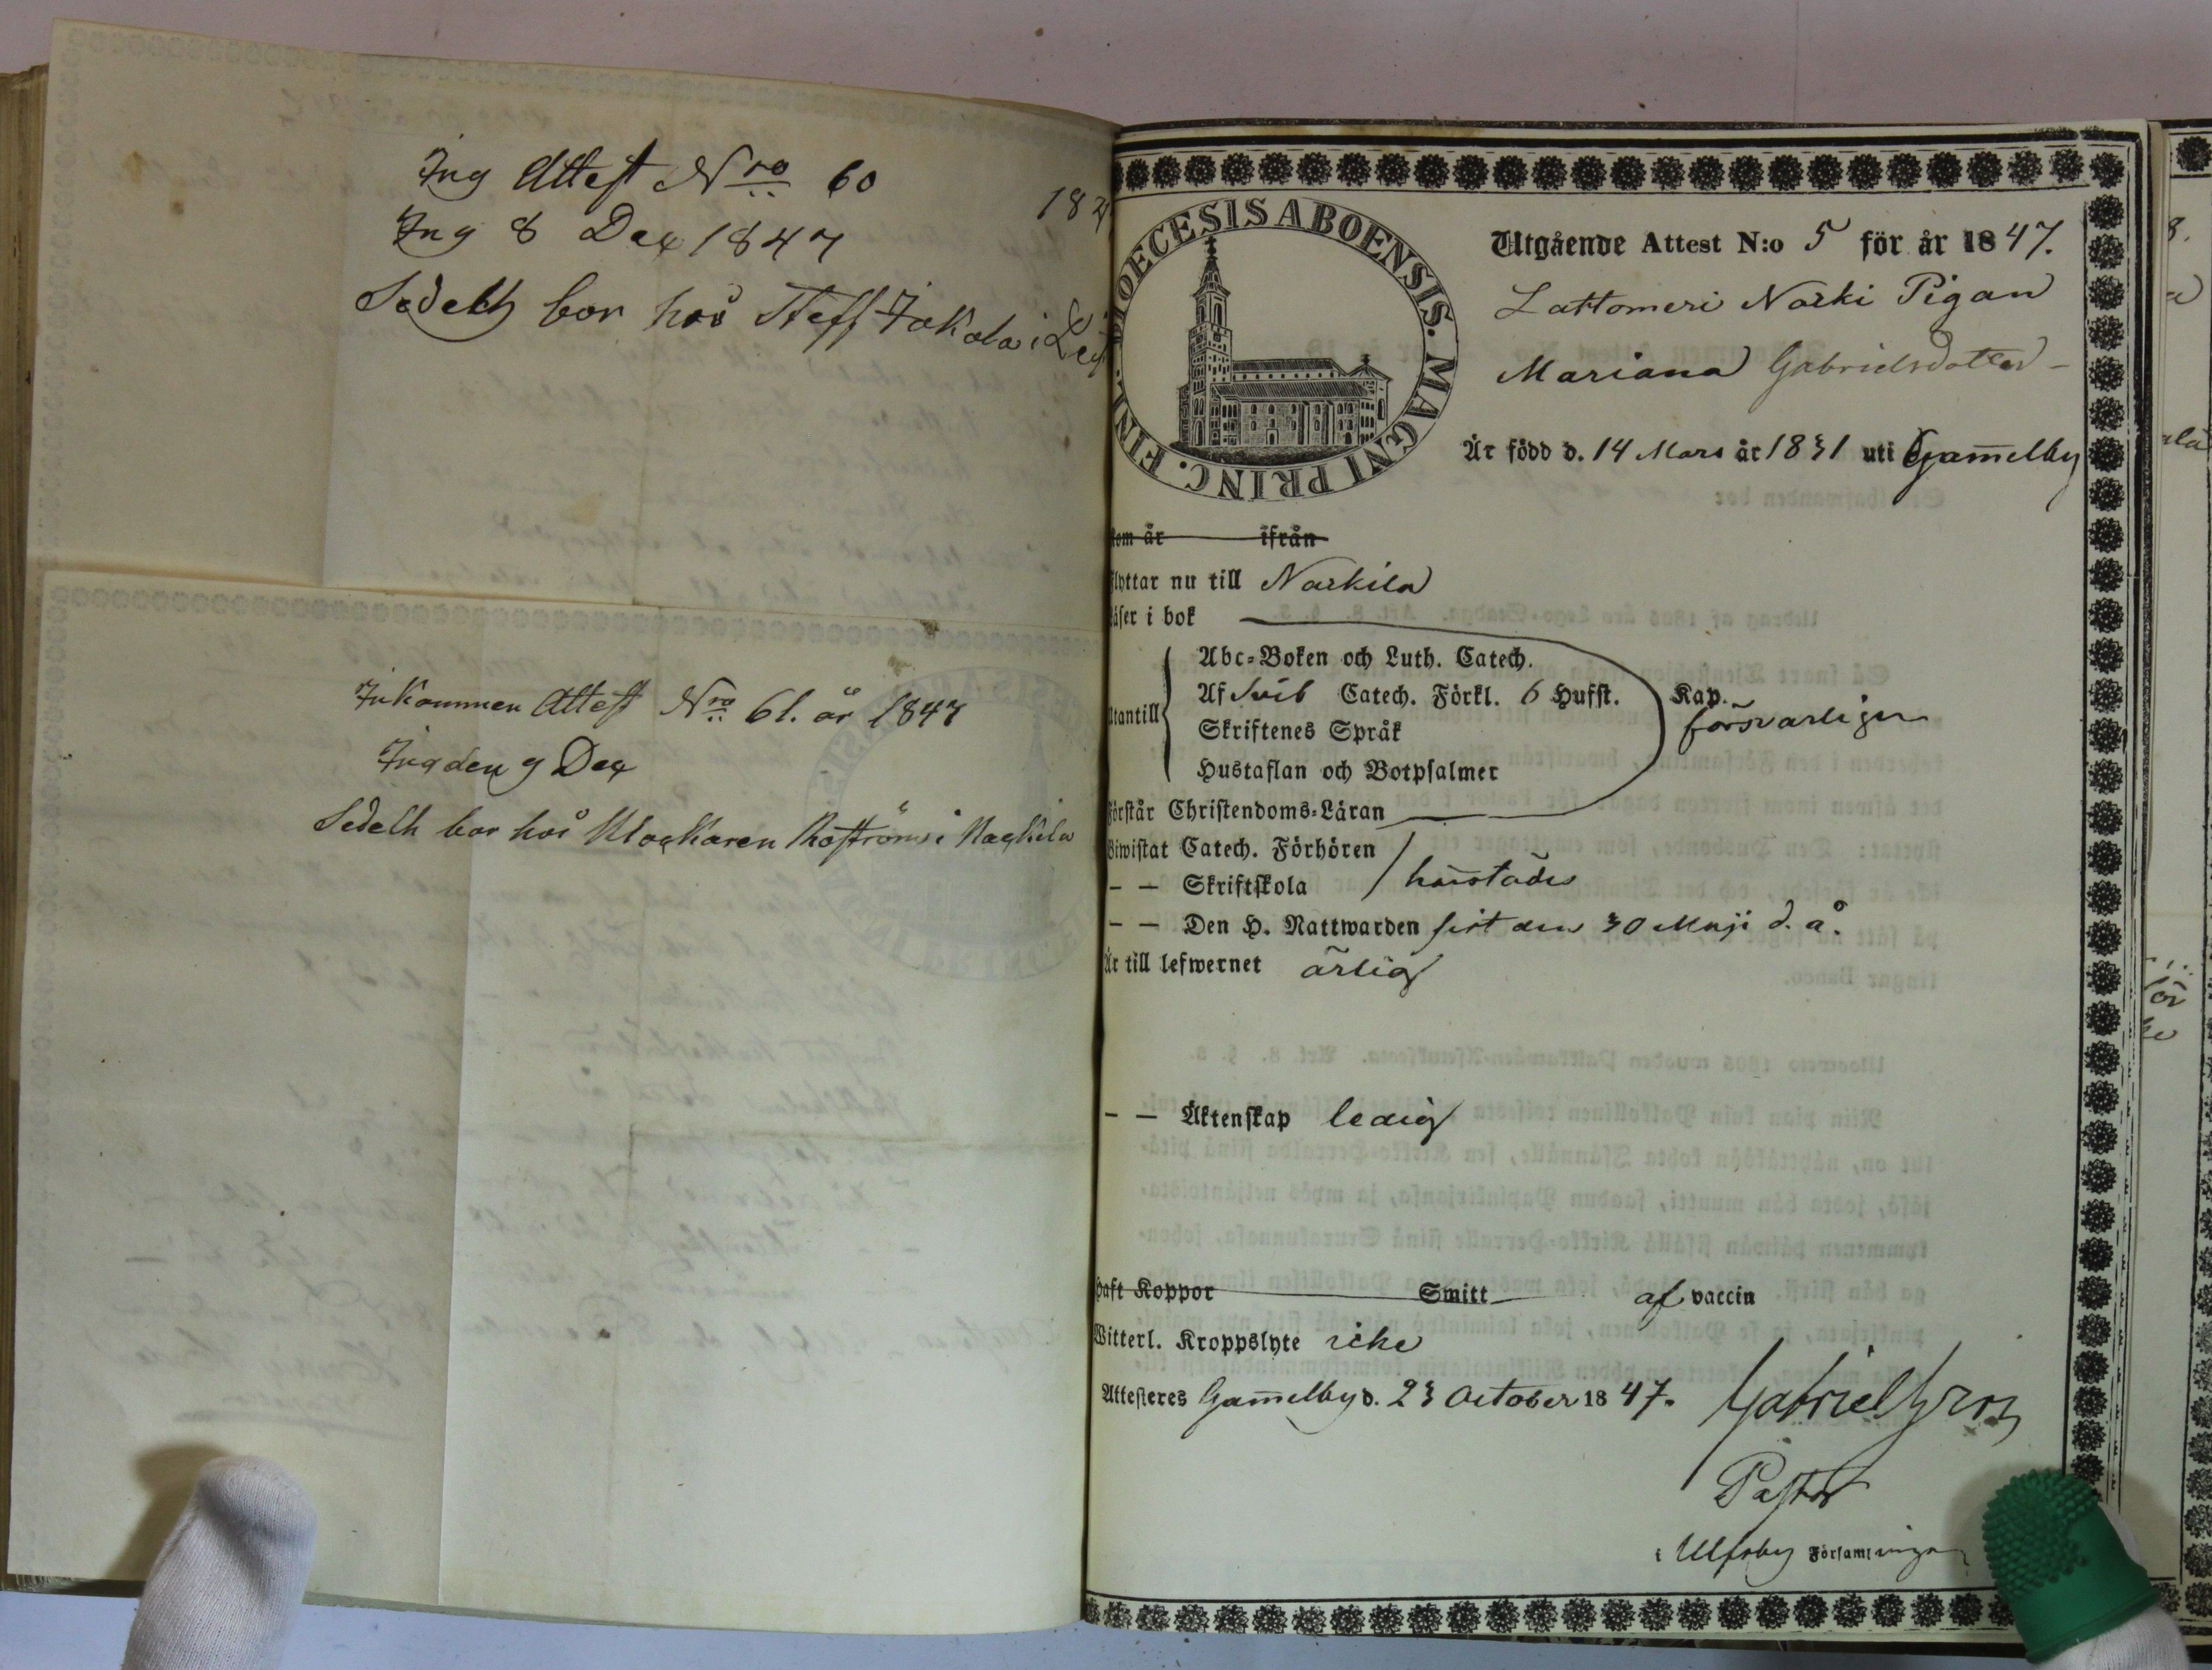 Ing Attest Nro 60
Ing 8 Dec 1847
Sedelh bor hos Steff Jakola i
Inkommen Attest Nro 61. år 1847
Ing den 9 Dec
Sedelh bor hos Klockaren Roström i Nackila
DIOECESIS ABOENSIS. MAGNI PRINC. FINL.
Utgående Attest N:o 5 för år 1847.
Lattomeri Norki Pigan
Mariana Gabrielsdotter
Är född d. 14 Mars år 1831 uti Gam̄elby
Kom år ifrån
Flyttar nu till Narkila
Läser i bok
Abc-Boken och Luth. Catech.
Af Sveb Catech. Förkl. 6 Hufst. Kap.
Utantill Skriftenes Språk försvarligen
Hustaflan och Botpsalmer
Förstår Christendoms-Läran
Biwistat Catech. Förhören
– – Skriftskola
– – Den H. Nattwarden sist den 30 Maji d. å.
Är till lefwernet ärlig
– – Äktenskap ledig
Haft Koppor Smitt af vaccin
Witterl. Kroppslyte icke
Attesteres Gam̄elby d. 23 October 1847.
Gabriel
Pastor
i Ulfsby Församlingen